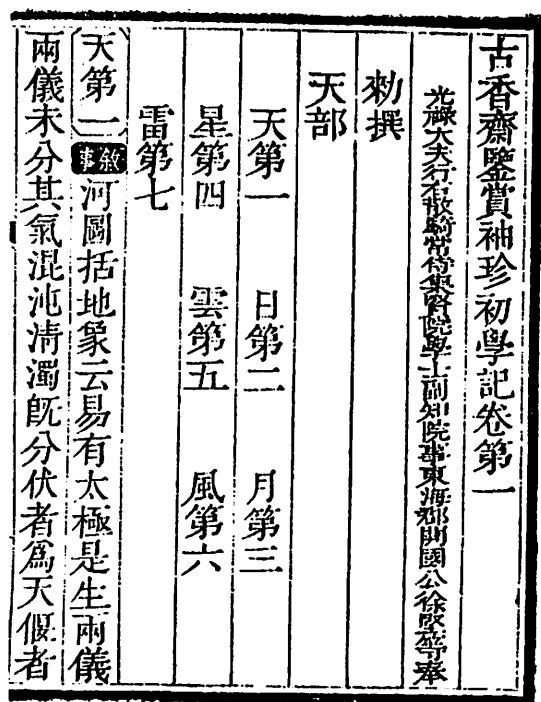 古香齋鑒賞袖珍初學記卷第一
光祿大夫行右散騎常侍集賢院學士副知院事東海郡開國公徐堅等奉
勑撰
天部
天第一 日第二 月第三
星第四 雲第五 風第六
雷第七
天第一 敘事 河圖括地象云易有太極是生兩儀
兩儀未分其氣混沌清濁旣分伏者爲天偃者